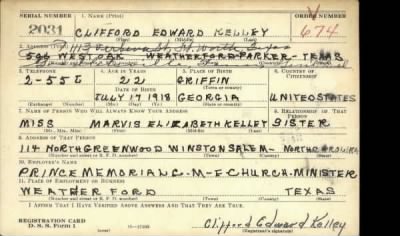 SERIAL NUMBER 1. NAME (Print) ORDER NUMBER
2031 CLIFFORD EDWARD KELLEY 674
(First) (Middle) (Last)
2. ADDRESS (Print)
1113 St. Worth Texas
506 WEST OAK WEATHERFORD-PARKER-TEXAS
3. TELEPHONE 4. AGE IN YEARS 5. PLACE OF BIRTH 6. COUNTRY OF CITIZENSHIP
2-55 22 GRIFFIN
DATE OF BIRTH (Town or county)
JULY 17 1918 GEORGIA UNITED STATES
(Exchange) (Number) (Mo.) (Day) (Yr.) (State or country)
7. NAME OF PERSON WHO WILL ALWAYS KNOW YOUR ADDRESS 8. RELATIONSHIP OF THAT PERSON
MISS MARVIS ELIZABETH KELLEY SISTER
(Mr., Mrs., Miss) (First) (Middle) (Last)
9. ADDRESS OF THAT PERSON
114 NORTH GREENWOOD WINSTON SALEM- NORTH CAROLINA
(Number and street or R. F. D. number) (Town) (County) (State)
10. EMPLOYER'S NAME
PRINCE MEMORIAL C.M.E CHURCH. MINISTER
11. PLACE OF EMPLOYMENT OR BUSINESS
WEATHERFORD TEXAS
(Number and street or R. F. D. number) (Town) (County) (State)
I AFFIRM THAT I HAVE VERIFIED ABOVE ANSWERS AND THAT THEY ARE TRUE.
REGISTRATION CARD
D. S. S. Form 1 Clifford Edward Kelley
(Registrant's signature)